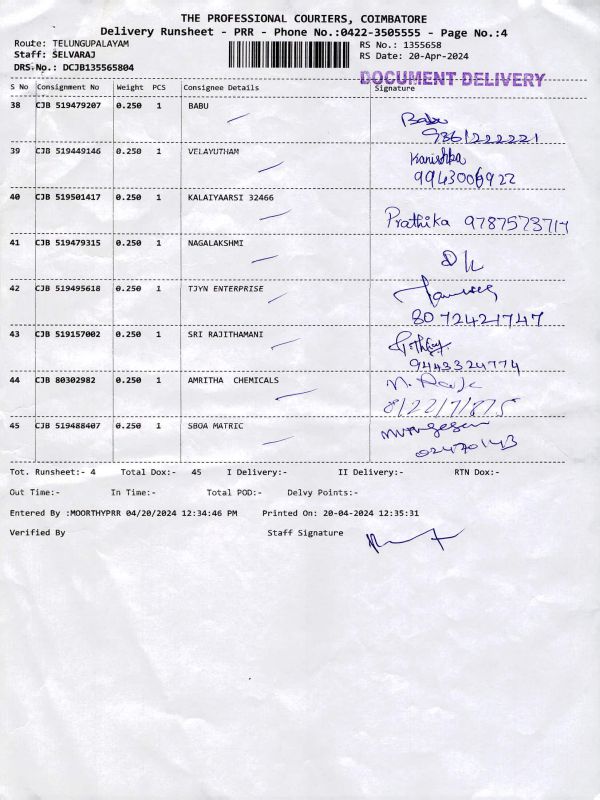 THE PROFESSIONAL COURIERS, COIMBATORE
Delivery Runsheet - PRR - Phone No.:0422-3505555 - Page No.:4
Route: TELUNGUPALAYAM
Staff: SELVARAJ
DRS.No.: DCJB135565804
RS No.: 1355658
RS Date: 20-Apr-2024
DOCUMENT DELIVERY
S No Consignment No Weight PCS Consignee Details Signature
38 CJB 519479207 0.250 1 BABU Babu
9361222221
39 CJB 519449146 0.250 1 VELAYUTHAM Kanishka
9943006922
40 CJB 519501417 0.250 1 KALAIYAARSI 32466
Prathika
41 CJB 519479315 0.250 1 NAGALAKSHMI
42 CJB 519495618 0.250 1 TJYN ENTERPRISE
8072421747
43 CJB 519157002 0.250 1 SRI RAJITHAMANI
9443324774
44 CJB 80302982 0.250 1 AMRITHA CHEMICALS
45 CJB 519488407 0.250 1 SBOA MATRIC
Tot. Runsheet:- 4 Total Dox:- 45 I Delivery:- II Delivery:- RTN Dox:-
Out Time:- In Time:- Total POD:- Delvy Points:-
Entered By :MOORTHYPRR 04/20/2024 12:34:46 PM Printed On: 20-04-2024 12:35:31
Verified By Staff Signature